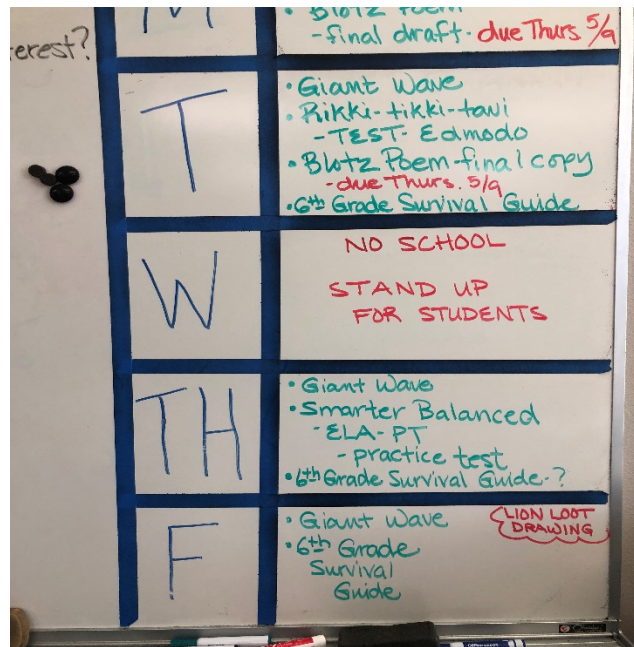 erest?
M
• Blotz Poem
- final draft - due Thurs 5/9
T
• Giant Wave
• Rikki-tikki-tavi
- TEST - Edmodo
• Blotz Poem - final copy
- due Thurs. 5/9
• 6th Grade Survival Guide
W
NO SCHOOL
STAND UP
FOR STUDENTS
TH
• Giant Wave
• Smarter Balanced
- ELA - PT
- practice test
• 6th Grade Survival Guide - ?
F
• Giant Wave
• 6th Grade
Survival
Guide
LION LOOT
DRAWING